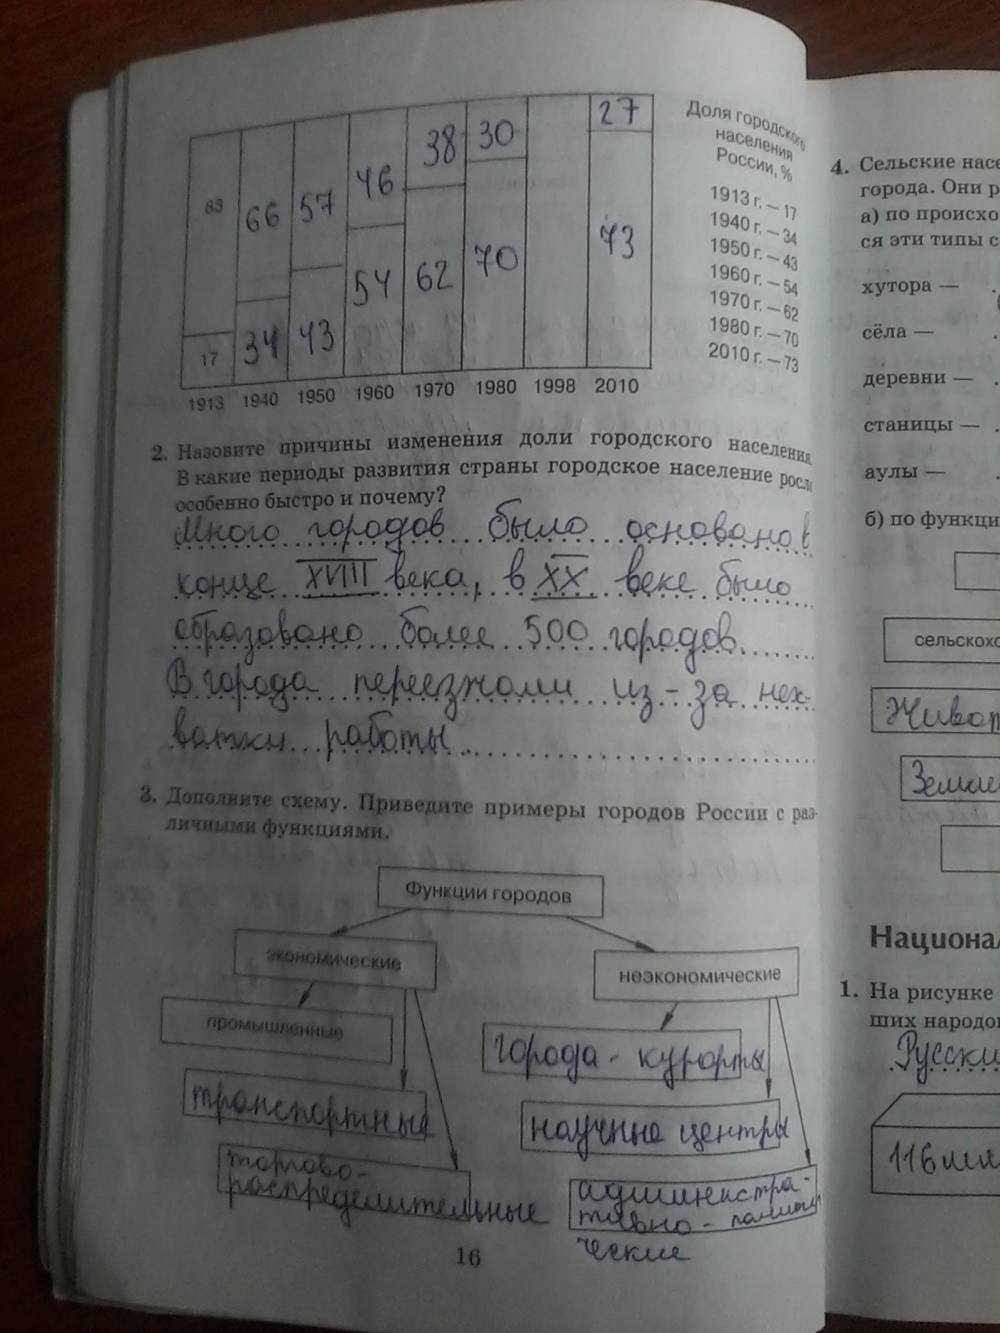 83
66
57
46
38
30
27
17
34
43
54
62
70
73
1913 1940 1950 1960 1970 1980 1998 2010
Доля городского
населения
России, %
1913 г. — 17
1940 г. — 34
1950 г. — 43
1960 г. — 54
1970 г. — 62
1980 г. — 70
2010 г. — 73
2. Назовите причины изменения доли городского населения
В какие периоды развития страны городское население росл
особенно быстро и почему?
Много городов было основано в
конце XVIII века, в XX веке было
образовано более 500 городов.
В города переезжали из-за нех-
ватки работы
3. Дополните схему. Приведите примеры городов России с раз-
личными функциями.
Функции городов
экономические
неэкономические
промышленные
города - курорты
транспортные
научные центры
торгово-
распределительные
администра-
тивно - полити
ческие
16
4. Сельские насе
города. Они р
а) по происхо
ся эти типы с
хутора —
сёла —
деревни —
станицы —
аулы —
б) по функци
сельскохо
Живот
Земле
Национал
1. На рисунке
ших народо
Русски
116 млн